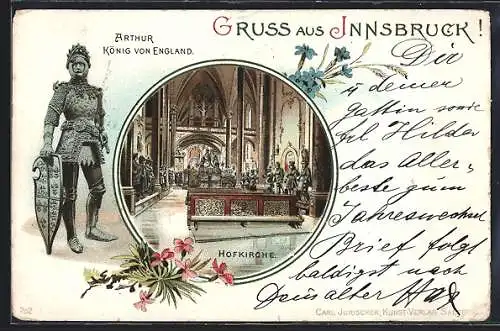 ARTHUR
KÖNIG VON ENGLAND.
GRUSS AUS INNSBRUCK!
HOFKIRCHE.
Dir
u deiner
Gattin sowie
Frl Hilde
das Aller-
beste zum
Jahreswechsel
Brief folgt
baldigst nach
Dein alter
702
CARL JURISCHEK, KUNST-VERLAG